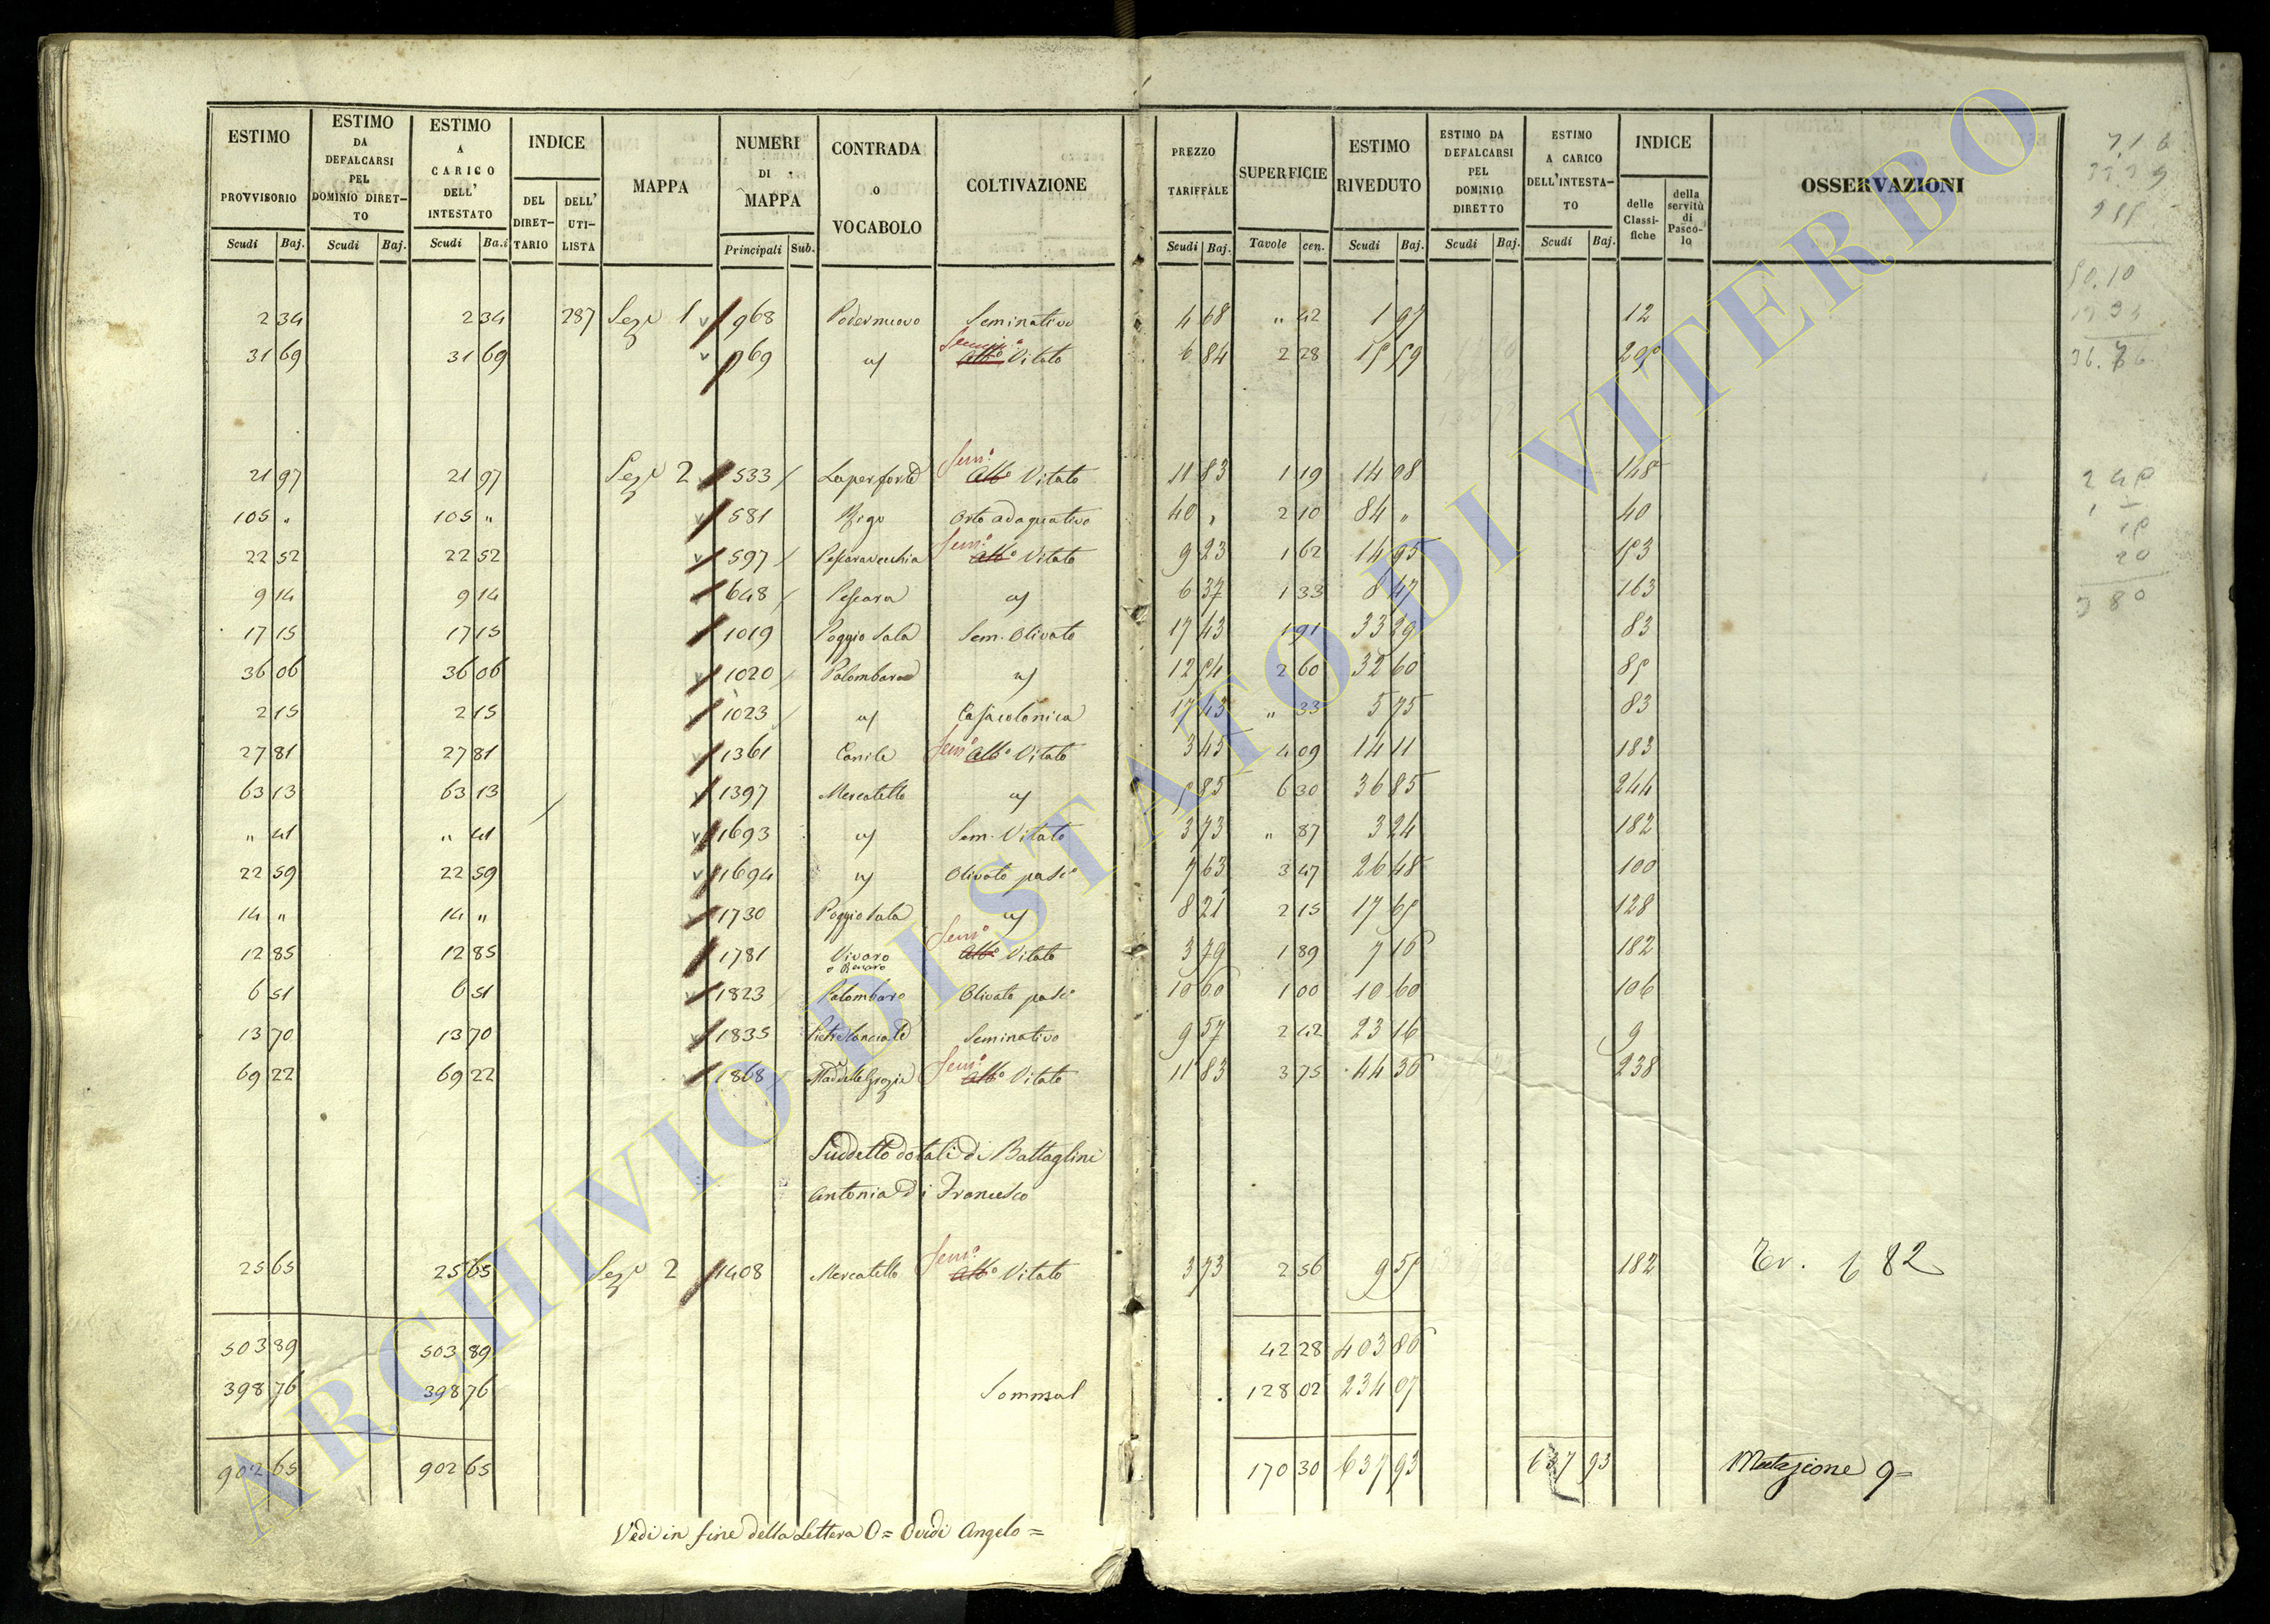 ESTIMO PROVVISORIO Scudi Baj. | ESTIMO DA DEFALCARSI PEL DOMINIO DIRETTO Scudi Baj. | ESTIMO A CARICO DELL' INTESTATO Scudi Baj. | INDICE DEL DIRETTARIO DELL' UTILISTA | MAPPA | NUMERI DI MAPPA Principali Sub. | CONTRADA o VOCABOLO | COLTIVAZIONE | PREZZO TARIFFALE Scudi Baj. | SUPERFICIE Tavole cen. | ESTIMO RIVEDUTO Scudi Baj. | ESTIMO DA DEFALCARSI PEL DOMINIO DIRETTO Scudi Baj. | ESTIMO A CARICO DELL'INTESTATO Scudi Baj. | INDICE delle Classifiche della servitù di Pascolo | OSSERVAZIONI
2 34 2 34 287 Sezе 1 968 Podernuovo Seminativo 4 68 " 42 1 97 12
31 69 31 69 969 Semin.o Vitato 6 84 2 28 15 59 205
21 97 21 97 Seze 2 533 Sem.o Alb.o Vitato 11 83 1 19 14 08 148
105 " 105 " 581 Orto adaquativo 40 " 2 10 84 " 40
22 52 22 52 597 Pescaravecchia Sem.o Alb.o Vitato 9 23 1 62 14 95 153
9 14 9 14 648 Pescara 6 37 1 33 8 47 163
17 15 17 15 1019 Poggio Sala Sem. Olivato 17 43 1 91 33 29 83
36 06 36 06 1020 Palombara 12 54 2 60 32 60 85
2 15 2 15 1023 Casa colonica 17 43 " 33 5 75 83
27 81 27 81 1361 Canile Sem.o Alb.o Vitato 3 45 4 09 14 11 183
63 13 63 13 1397 Mercatello 5 85 6 30 36 85 244
" 41 " 41 1693 Sem. Vitato 3 73 " 87 3 24 182
22 59 22 59 1694 Olivato pas.o 7 63 3 47 26 48 100
14 " 14 " 1730 Poggio Sala 8 21 2 15 17 65 128
12 85 12 85 1781 Vivaro Sem.o Alb.o Vitato 3 79 1 89 7 16 182
6 51 6 51 1823 Palombaro Olivato pas.o 10 60 1 00 10 60 106
13 70 13 70 1835 Seminativo 9 57 2 42 23 16 9
69 22 69 22 1868 Sem.o Alb.o Vitato 11 83 3 75 44 36 238
Suddetto dotali di Battaglini
Antonia di Francesco
25 65 25 65 Seze 2 1408 Mercatello Sem.o Alb.o Vitato 3 73 2 56 9 55 182 682
503 89 503 89 42 28 403 86
398 76 398 76 128 02 234 07
902 65 902 65 170 30 637 93 637 93 Mutazione 9=
Vedi in fine della Lettera O= Ovidi Angelo=
ARCHIVIO DI STATO DI VITERBO